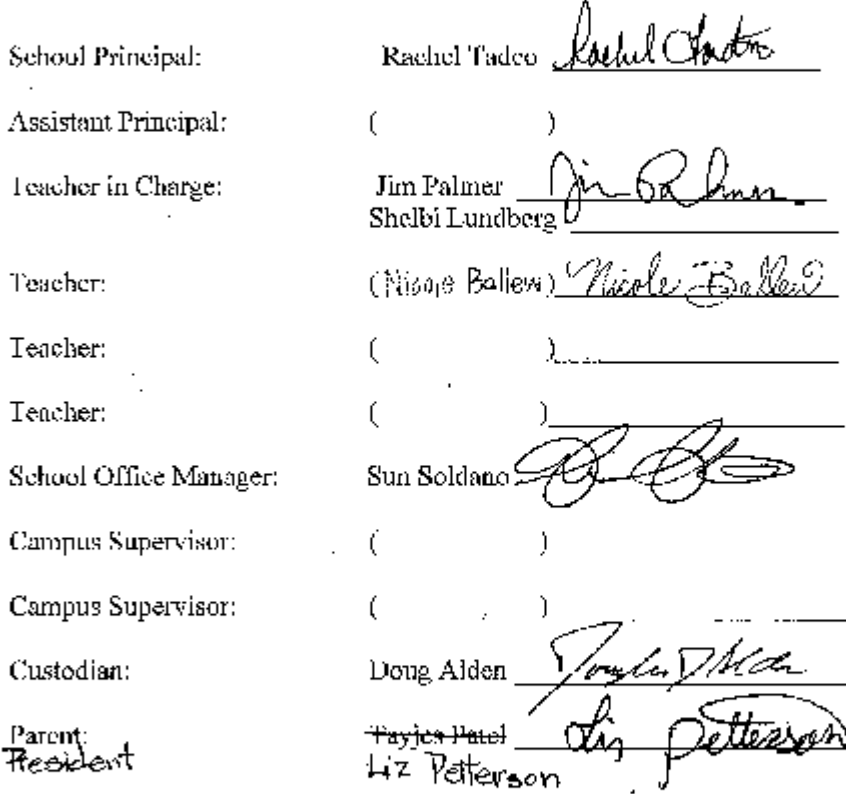 School Principal: Rachel Tadeo Rachel Tadeo
Assistant Principal: ( )
Teacher in Charge: Jim Palmer Jim Palmer
Shelbi Lundberg
Teacher: (Nicole Ballew) Nicole Ballew
Teacher: ( )
Teacher: ( )
School Office Manager: Sun Soldano
Campus Supervisor: ( )
Campus Supervisor: ( )
Custodian: Doug Alden Douglas D Alden
Parent: Tayjes Patel Liz Petterson
President Liz Petterson